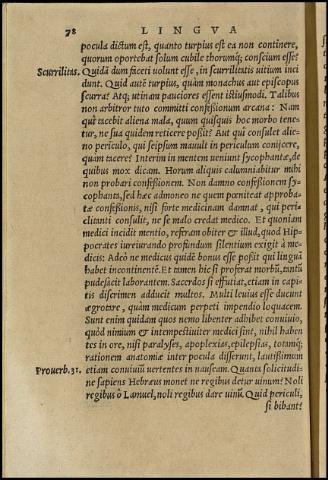 78 LINGVA
pocula dictum est, quanto turpius est ea non continere,
quorum oportebat solum cubile thorumq; conscium esse?
Scurrilitas. Quidā dum faceti uolunt esse, in scurrilitatis uitium inci
dunt. Quid autē turpius, quàm monachus aut episcopus
scurra? Atq; utinam pauciores essent istiusmodi. Talibus
non arbitror tuto committi confessionum arcana: Nam
qui tacebit aliena mala, quum quisquis hoc morbo tene-
tur, ne sua quidem reticere possit? Aut qui consulet alie-
no periculo, qui seipsum mauult in periculum conijcere,
quàm tacere? Interim in mentem ueniunt sycophantæ, de
quibus mox dicam. Horum aliquis calumniabitur mihi
non probari confessionem. Non damno confessionem sy-
cophanta, sed hæc admoneo ne quem pœniteat approba-
tæ confessionis, nisi forte medicinam damnat, qui peri-
clitanti consulit, ne se malo credat medico. Et quoniam
medici incidit mentio, referam obiter & illud, quod Hip-
pocrates iureiurando profundum silentium exigit à me-
dicis: Adeò ne medicus quidē bonus esse possit qui linguā
habet incontinentē. Et tamen hic si proferat morbū, tantū
pudefacit laborantem. Sacerdos si effutiat, etiam in capi-
tis discrimen adducit multos. Multi leuius esse ducunt
ægrotare, quàm medicum perpeti impendio loquacem.
Sunt enim quidam quos nemo libenter adhibet conuiuio,
quòd nimium & intempestiuiter medici sint, nihil haben
tes in ore, nisi paralyses, apoplexias, epilepsias, totamq;
rationem anatomiæ inter pocula disserunt, lautissimum
etiam conuiuiū uertentes in nauseam. Quanta solicitudi-
Prouerb.31. ne sapiens Hebræus monet ne regibus detur uinum? Noli
regibus ô Lamuel, noli regibus dare uinū. Quid periculi,
si bibant?